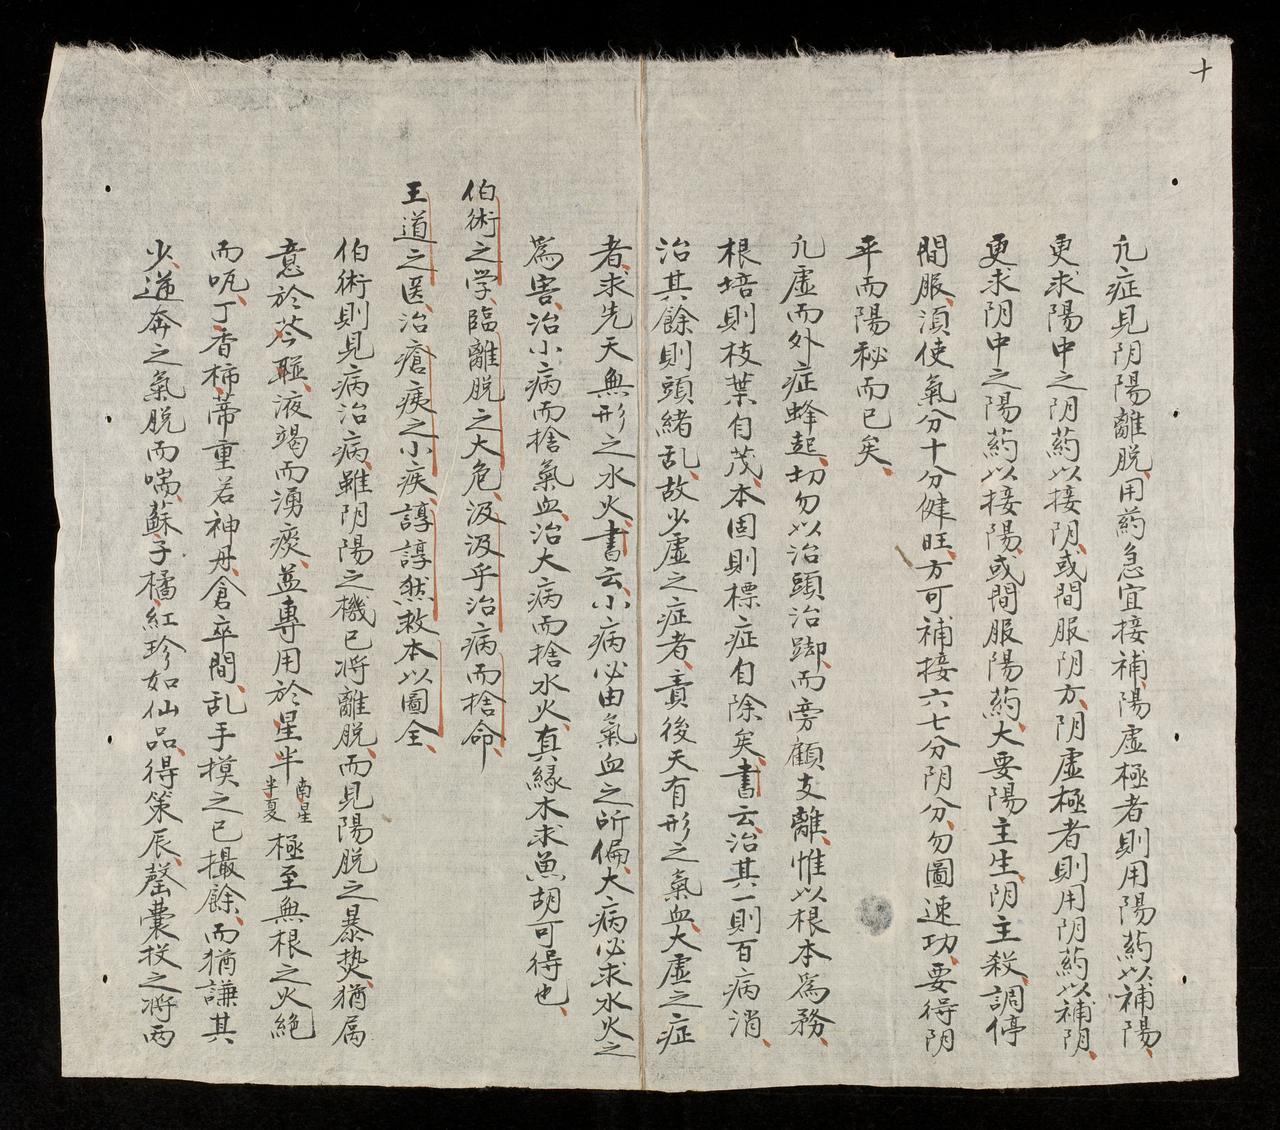 十
凢症見阴陽離脱、用药急宜接補、陽虚極者則用陽药以補陽、
更求陽中之阴药以接阴、或間服阴方、阴虚極者則用阴药以補阴、
更求阴中之陽药以接陽、或間服陽药、大要陽主生、阴主殺、調停
間服、湏使氣分十分健旺、方可補接六七分阴分、勿圖速功、要得阴
平而陽秘而已矣、
凢虚而外症蜂起、切勿以治頭治脚、而旁顧支離、惟以根本爲務、
根培則枝葉自茂、本固則標症自除矣、書云、治其一則百病消、
治其餘則頭緒乱、故少虚之症者、責後天有形之氣血、大虚之症
者、求先天無形之水火、書云、小病必由氣血之所偏、大病必求水火之
爲害、治小病而捨氣血、治大病而捨水火、真緣木求魚胡可得也、
伯術之学、臨離脱之大危、汲汲乎治病而捨命、
王道之医、治瘡痍之小疾、諄諄然救本以圖全、
伯術則見病治病、雖阴陽之機已将離脱、而見陽脱之暴𤍠、猶属
意於芩連、液竭而湧痰、葢専用於星半南星半夏極至無根之火絶
而呃、丁香柿蒂重若神丹、倉卒間、乱手摸之已撮餘、而猶謙其
少、逆奔之氣脱而喘、蘇子橘紅珍如仙品、得策辰、罄囊投之将両